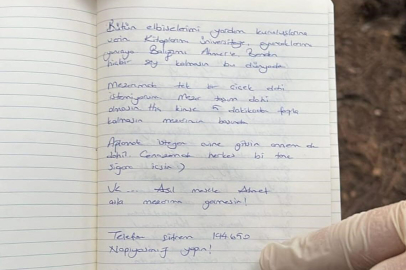 Bütün elbiselerimi yardım kuruluşlarına
verin Kitaplarımı üniversiteye, oyuncaklarımı
yuvaya Balığımı Ahmet'e Benden
hiçbir şey kalmasın bu dünyada
Mezarımda tek bir çiçek dahi
istemiyorum Mezar taşım dahi
olmasın Hiç kimse 5 dakikadan fazla
kalmasın mezarımın başında
Ağlamak isteyen evine gitsin annem de
dahil. Cenazemde herkes bi tane
sigara içsin :)
Ve ... Asıl mesele Ahmet
asla mezarıma gelmesin!
Telefon şifrem 144650
Napıyosanız yapın!